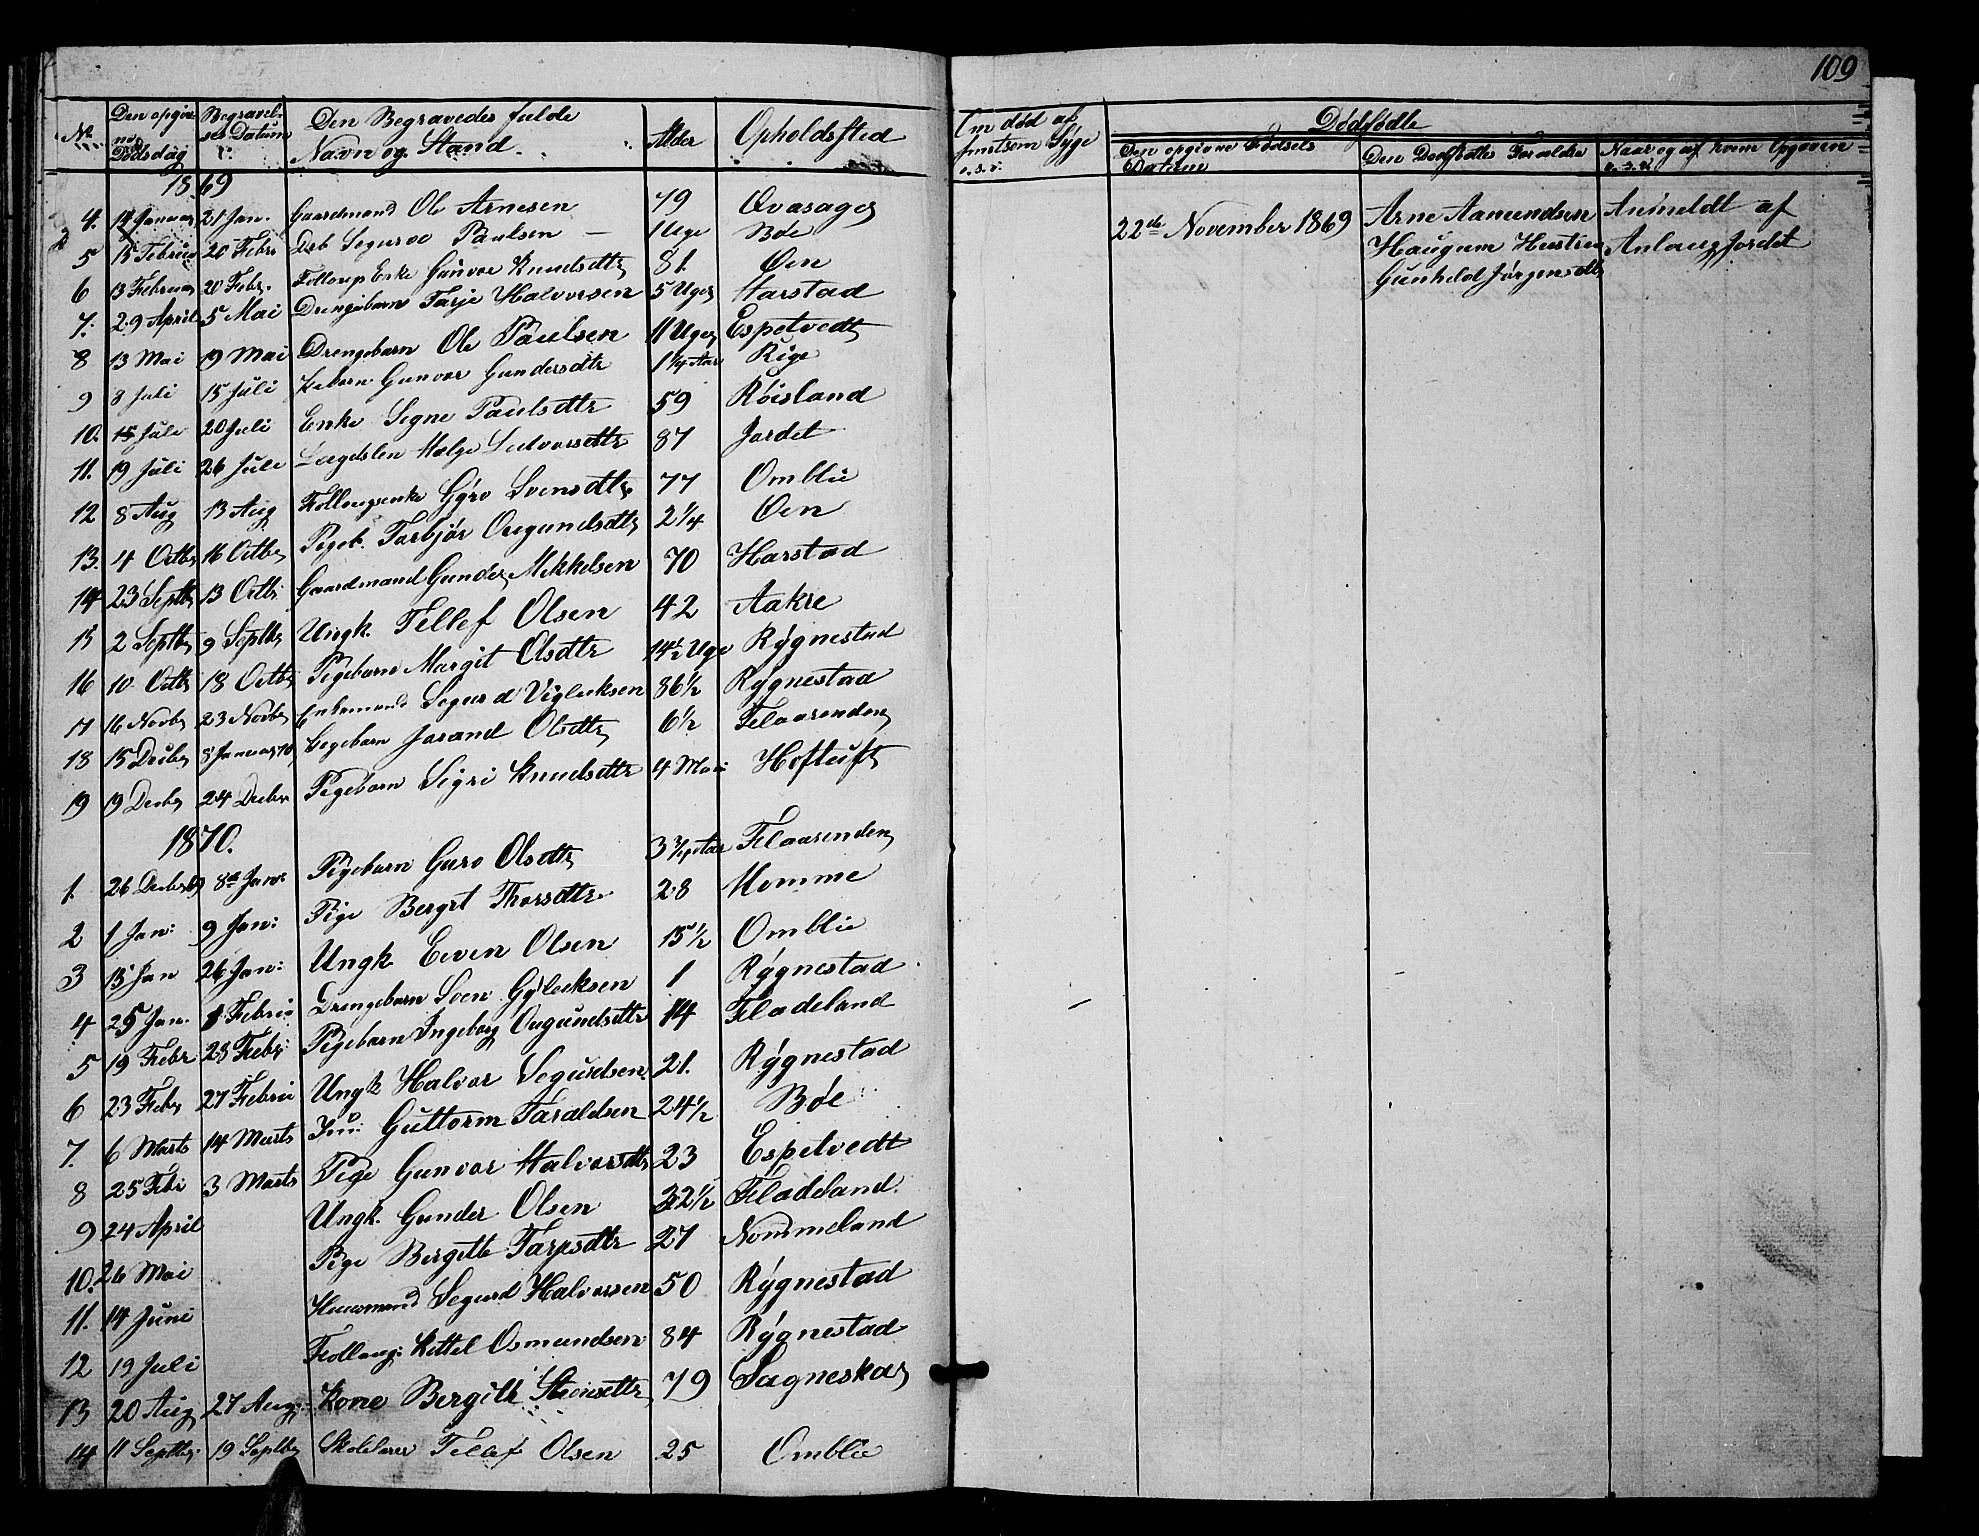 109
No. Den opgivne Dødsdag Begravelses Datum Den Begravedes fulde Navn og Stand Alder Opholdssted
Om død af smitsom Syge o.s.v.
Dødfødte
Den opgivne Fødsels Datum Den Dødfødtes Forældre Naar og af hvem Opgaven o.s.v.
1869
4. 14 Januar 21 Jan. Gaardmand Ole Arnesen 79
5 15 Februar 20 Febr. Paulsen 1 Uge Bøe
6 13 Februar 20 Febr. Gunvor Knudsdtr 81. Øen
7. 29 April 5 Mai Drengebarn Tarje Halvorsen 5 Uger Harstad
8 13 Mai 19 Mai Drengebarn Ole Paulsen 11 Uger Espetvedt
9 8 Juli 15 Juli Gunvor Gundersdtr 1 1/4 Aar Rige
10. 15 Juli 20 Juli Enke Signe Paulsdtr 59 Røisland
11. 19 Juli 26 Juli Helge 87 Jordet
12 8 Aug 13 Aug Gyro Svensdtr 77 Omblie
13. 4 Octbr 16 Octbr Pigeb. Torbjør Ougundsdtr 2 1/4 Øen
14 23 Septbr 13 Octbr Gaardmand Gunder Mikkelsen 70 Harstad
15 2 Septbr 9 Septbr Ungk. Tellef Olsen 42 Aakre
16 10 Octbr 18 Octbr Pigebarn Margit Olsdtr 14 1/2 Uge Rygnestad
17 16 Novbr 23 Novbr Enkemand Sigurd Vigleiksen 86 1/2 Rygnestad
18 15 Decbr 8 Januar 70 Pigebarn Jorand Olsdtr 6 1/2 Flaarenden
19 19 Decbr 24 Decbr Pigebarn Sigri Knudsdtr 4 Hoftuft
1870.
1. 26 Decbr 69 8de Jan: Pigebarn Guro Olsdtr 3 3/4 Aar Flaarenden
2 1 Jan: 9 Jan: Pige Bergit Thorsdtr. 28 Homme
3 15 Jan 26 Jan: Ungk. Even Olsen 15 1/2 Omblie
4 25 Jan. 1 Februar Drengebarn Sven Gyleiksen 1 Rygnestad
5 19 Febr 28 Febr: Pigebarn Ingeborg Ougundsdtr 14 Fladeland
6 23 Febr 27 Februar Ungk Halvor Segurdsen 21. Rygnestad
7. 6 Marts 14 Marts Guttorm Taraldsen 24 1/2 Bøe
8 25 Febr 3 Marts Pige Gunvor Halvorsdtr 23 Espetvedt
9 24 April Ungk. Gunder Olsen 22 1/2 Fladeland.
10. 26 Mai Pige Bergith Tarjesdtr 27 Nommeland
11. 14 Juni Huusmand Segurd Halvorsen 50 Rygnestad
12 19 Juli Kittel Osmundsen 84 Rygnestad
13 20 Aug 27 Aug: Kone Bergith 79 Sagneskar
14 11 Septbr. 19 Septbr Skolelærer Tellef Olsen 25 Omblie
22de November 1869 Arne Aamundsen Anmeldt af
Haugum Hustru Anlaug Jordet
Gunhild Jørgensdtr